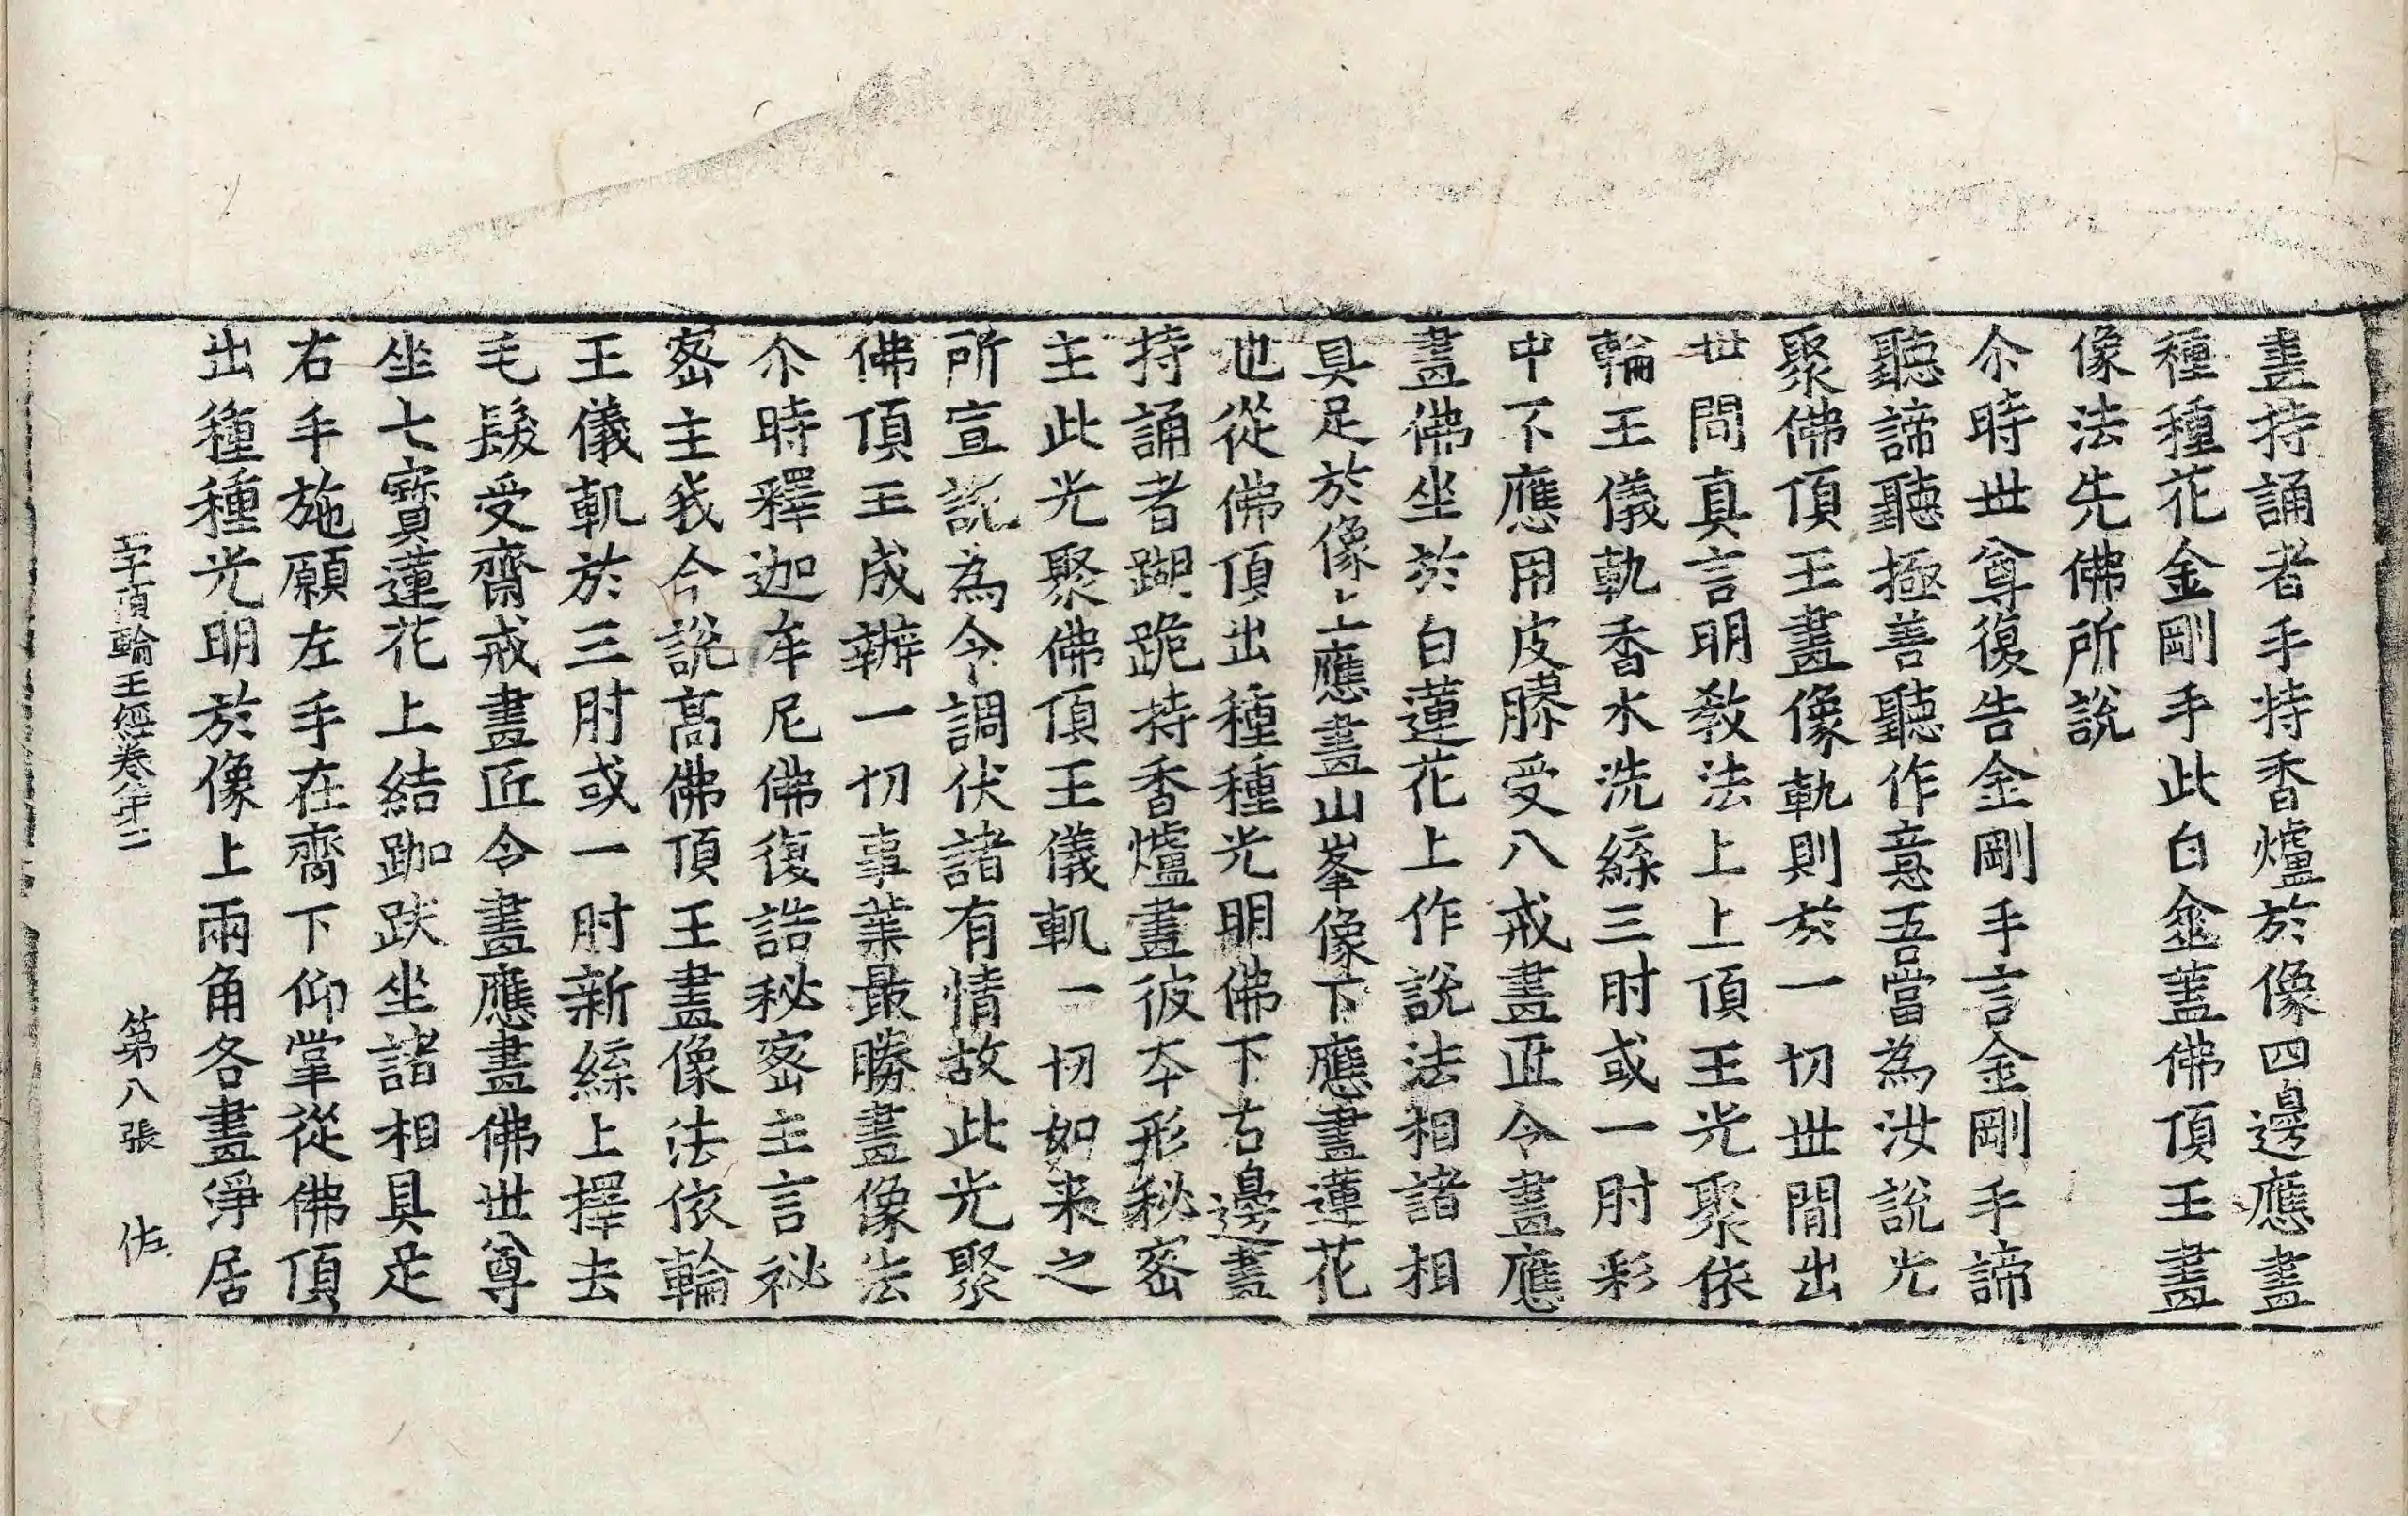 畫持誦者手持香爐於像四邊應畫
種種花金剛手此白傘蓋佛頂王畫
像法先佛所說
尒時世尊復告金剛手言金剛手諦
聽諦聽極善聽作意吾當為汝說光
聚佛頂王畫像軌則於一切世間出
世間真言明教法上上頂王光聚依
輪王儀軌香水洗緂三肘或一肘彩
中不應用皮膠受八戒畫匠令畫應
畫佛坐於白蓮花上作說法相諸相
具足於像上應畫山峯像下應畫蓮花
池從佛頂出種種光明佛下右邊畫
持誦者蹴跪持香爐畫彼本形秘密
主此光聚佛頂王儀軌一切如来之
所宣說為令調伏諸有情故此光聚
佛頂王成辦一切事業最勝畫像法
尒時釋迦牟尼佛復誥秘密主言祕
密主我今說高佛頂王畫像法依輪
王儀軌於三肘或一肘新緂上擇去
毛髮受齋戒畫匠令畫應畫佛世尊
坐七寶蓮花上結跏趺坐諸相具足
右手施願左手在齊下仰掌從佛頂
出種種光明於像上兩角各畫淨居
一字頂輪王經卷第二 第八張 佐